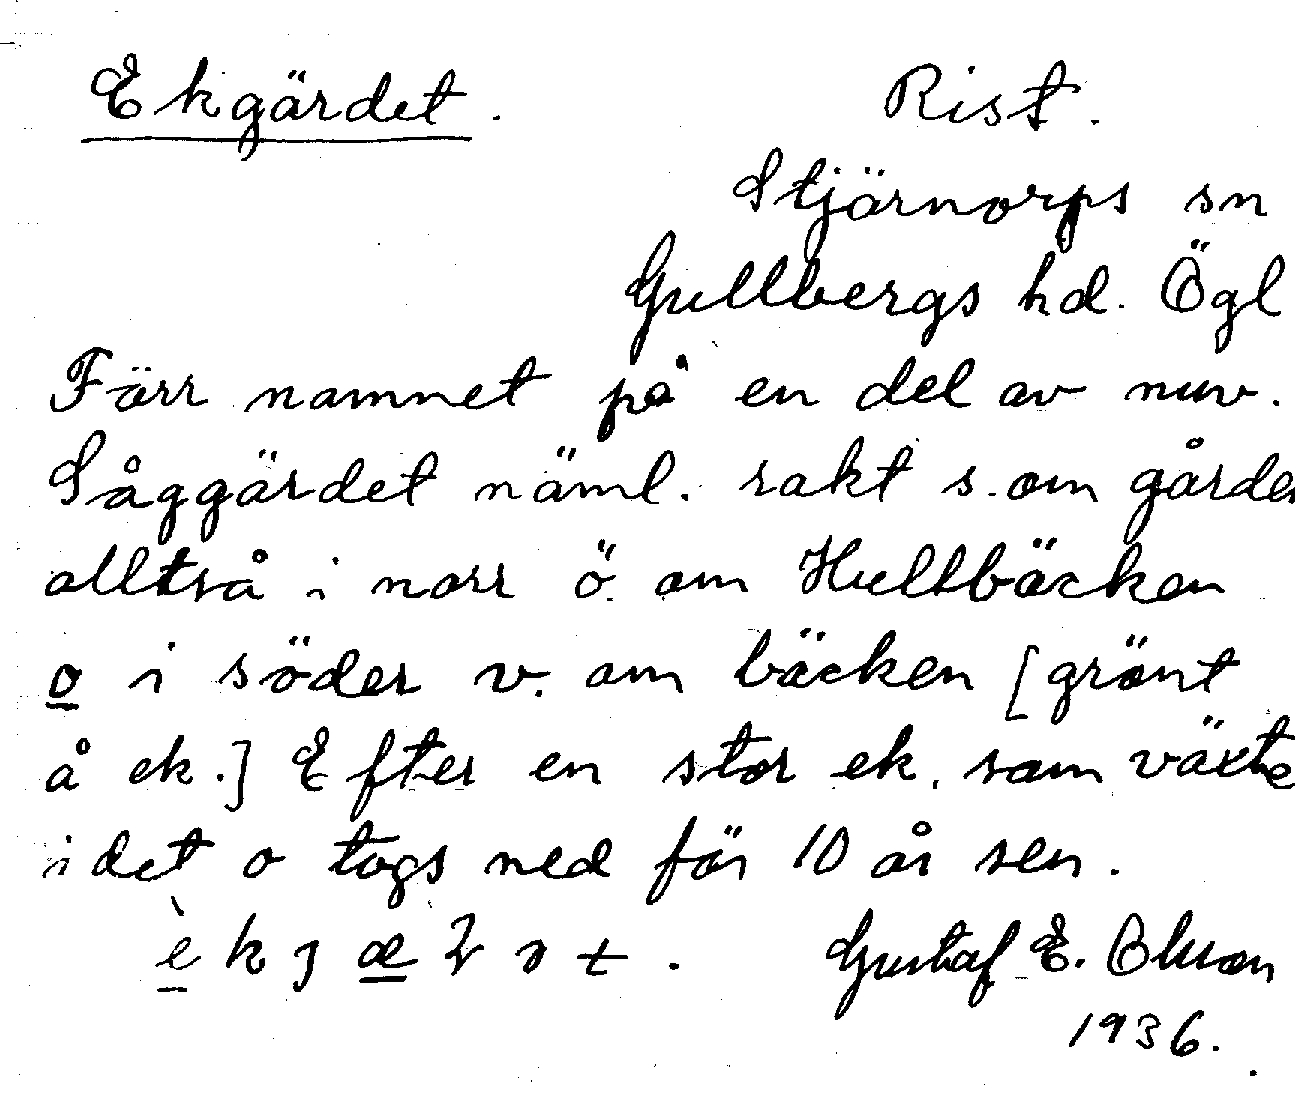 Ekgärdet. Rist.
Stjärnorps sn
Gullbergs hd. Ögl
Förr namnet på en del av nuv.
Såggärdet näml. rakt s. om gården
alltså i norr ö. om Hultbäcken
o i söder v. om bäcken [grönt
å ek.] Efter en stor ek, som växte
i det o togs ned för 10 år sen.
Gustaf E. Olsson
1936.